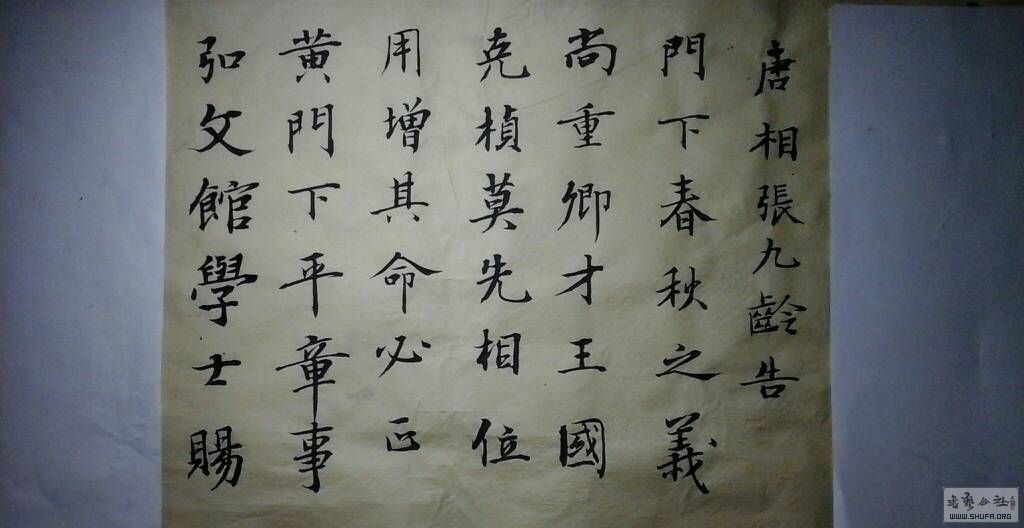 唐相張九齡告
門下春秋之義
尚重卿才王國
克楨莫先相位
用增其命必正
黄門下平章事
弘文館學士賜
书艺公社
WWW.SHUFA.ORG